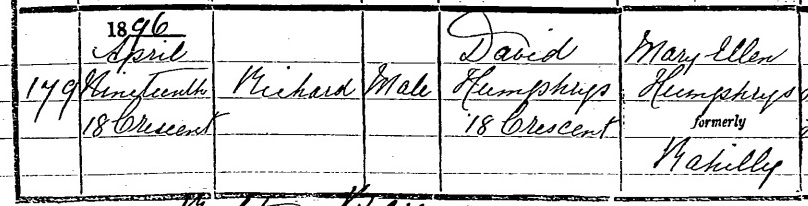 1896
April
179 Nineteenth
18 Crescent
Richard
Male
David
Humphrys
18 Crescent
Mary Ellen
Humphrys
formerly
Rahilly